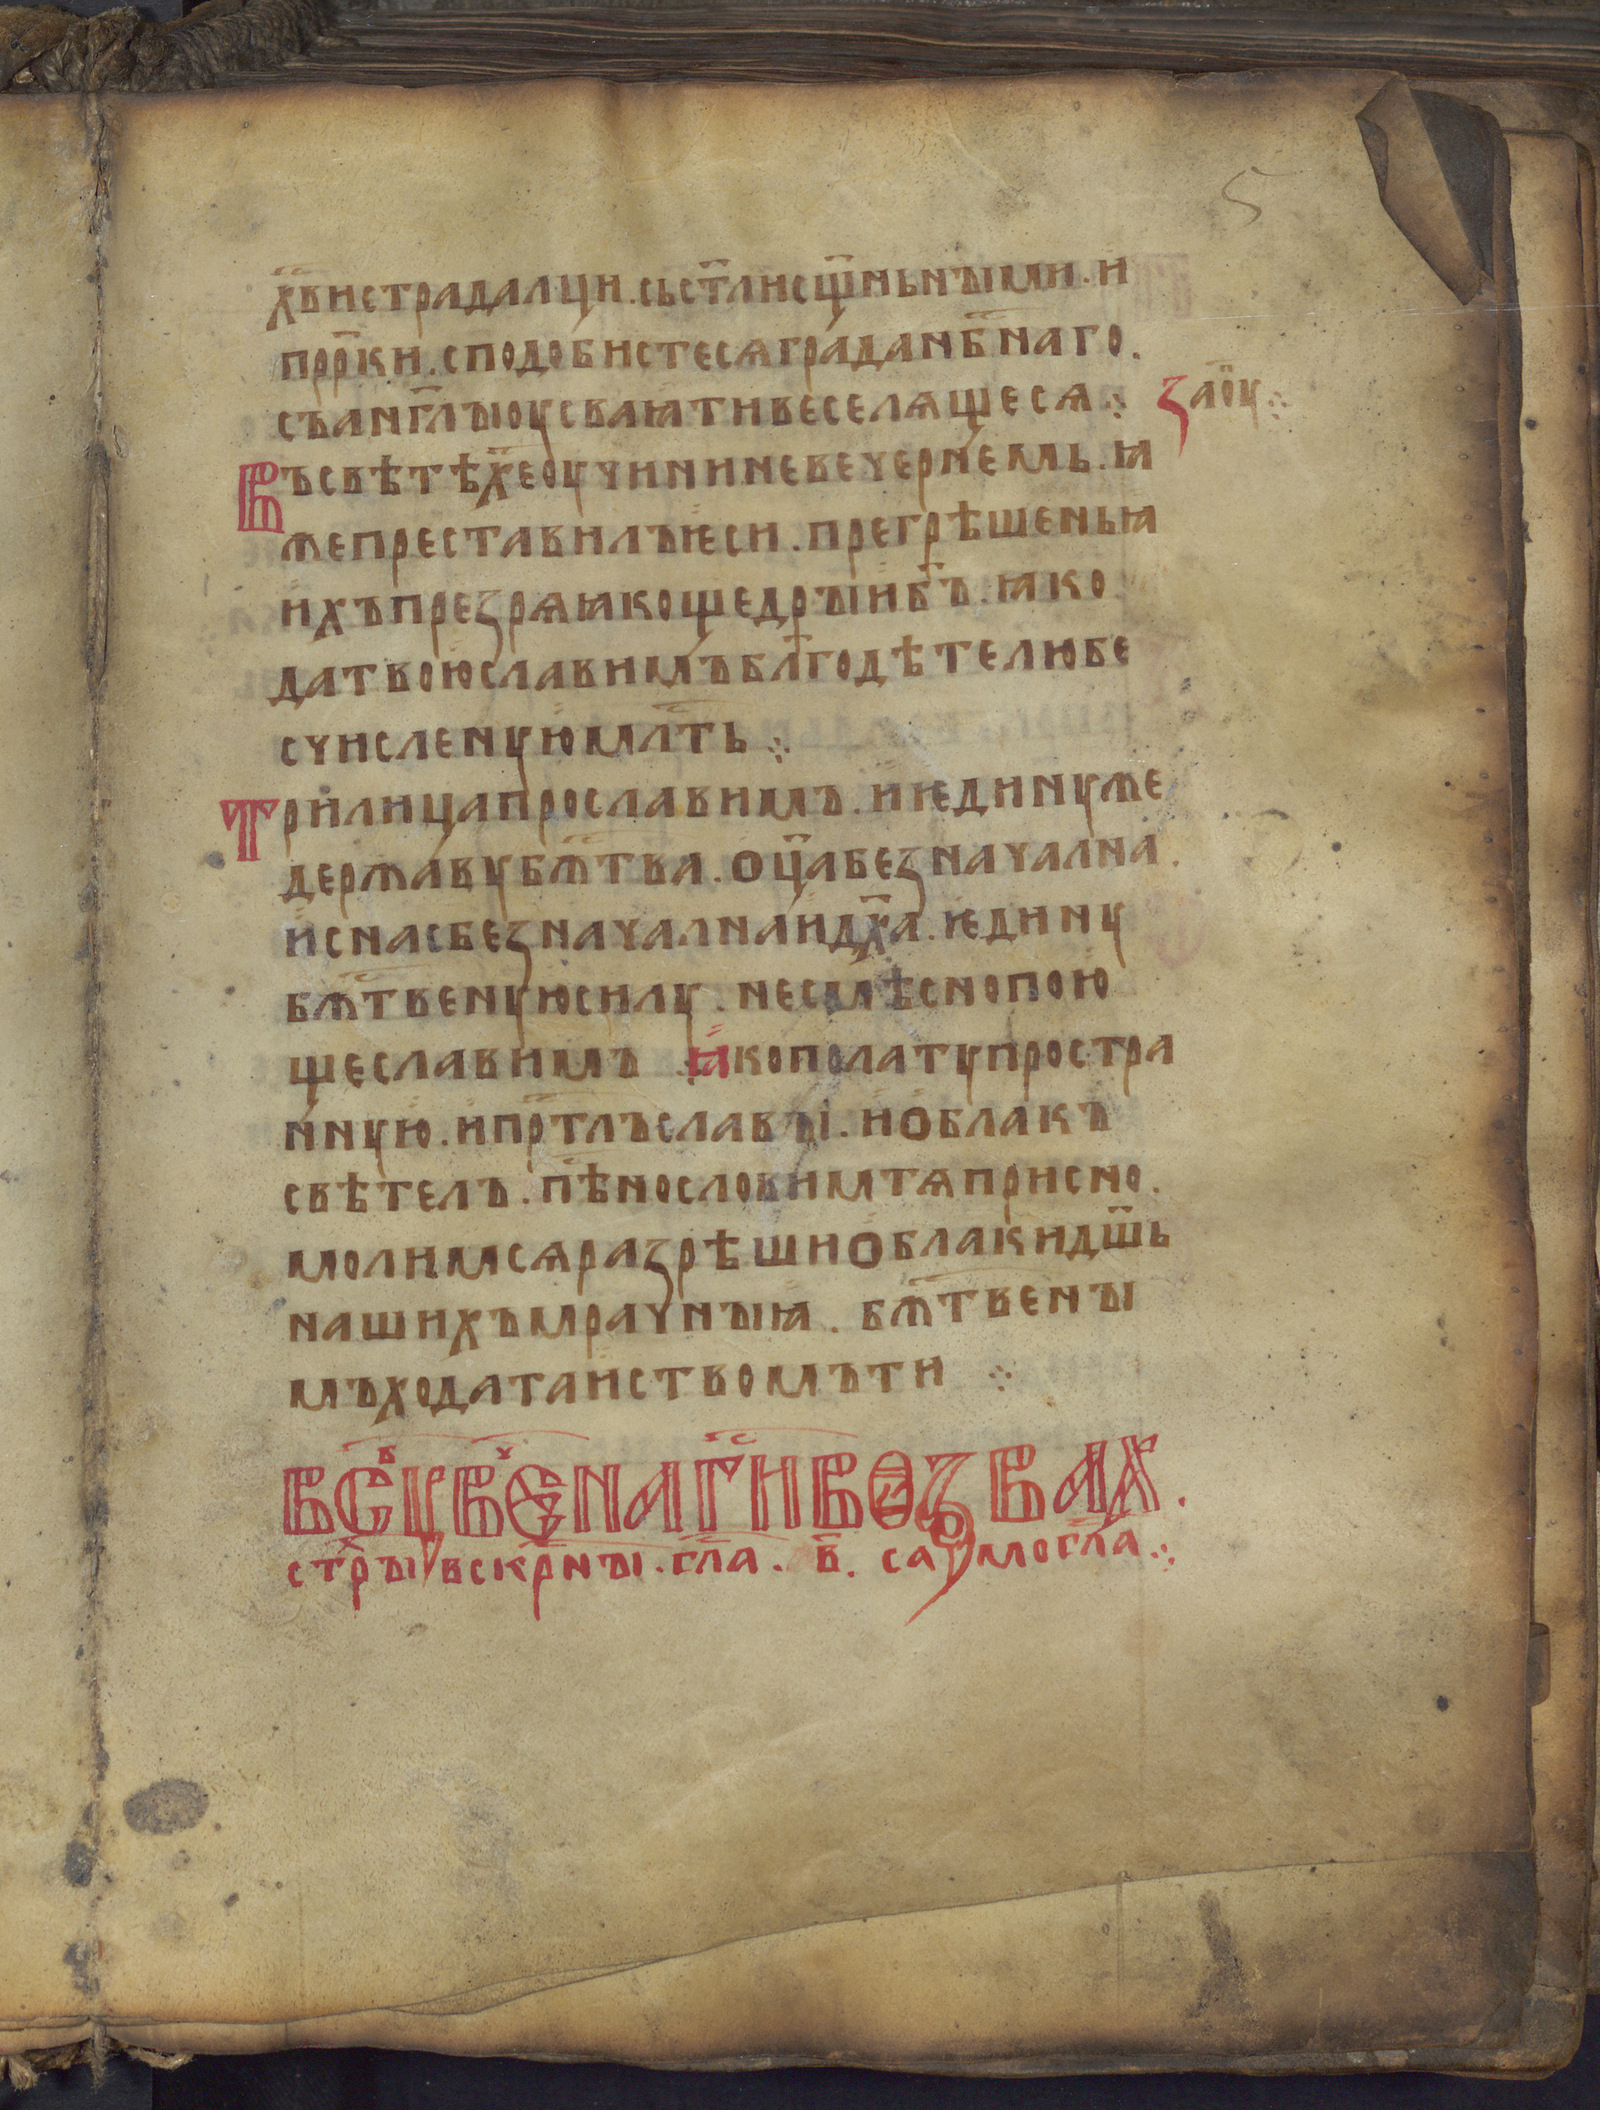 5
х҃ви страдалци . сь ст҃ли сщ҃ньнꙑми . и
прр҃ки . сподобистесѧ града нб҃наго .
съ анг҃лꙑ оусваꙗти веселѧщесѧ ⁘ за оу ⁘
Въ свѣтѣ х҃е оучини невечернемь . ꙗ
же преставилъ ѥси . прегрѣшеньꙗ
ихъ презрѧ ꙗко щедрꙑи б҃ъ . ꙗко
да твою славимъ бл҃годѣтелю бе
счисленꙋю млⷭ҇ть ⁘
Три лица прославимъ . и ѥдинꙋ же
державꙋ бжⷭ҇тва . оц҃а безначална .
и сна сбезначална и дх҃а . ѥдинꙋ
бжⷭ҇твенꙋю силꙋ . несмѣсно пою
ще славимъ ꙗко полатꙋ простра
ннꙋю . и прⷭ҇тлъ славꙑ . и облакъ
свѣтелъ . пѣнословим тѧ присно .
молим сѧ разрѣши облаки дш҃ь
нашихъ мрачнꙑꙗ . бжⷭ҇твенꙑ
мъ ходатаиствомъ ти ⁘
В сꙋⷠ҇ веⷱ҇ на гⷭ҇и возвах .
стр҃ꙑ вскр҃нꙑ . гл҃а . в҃ . самогл҃а ⁘